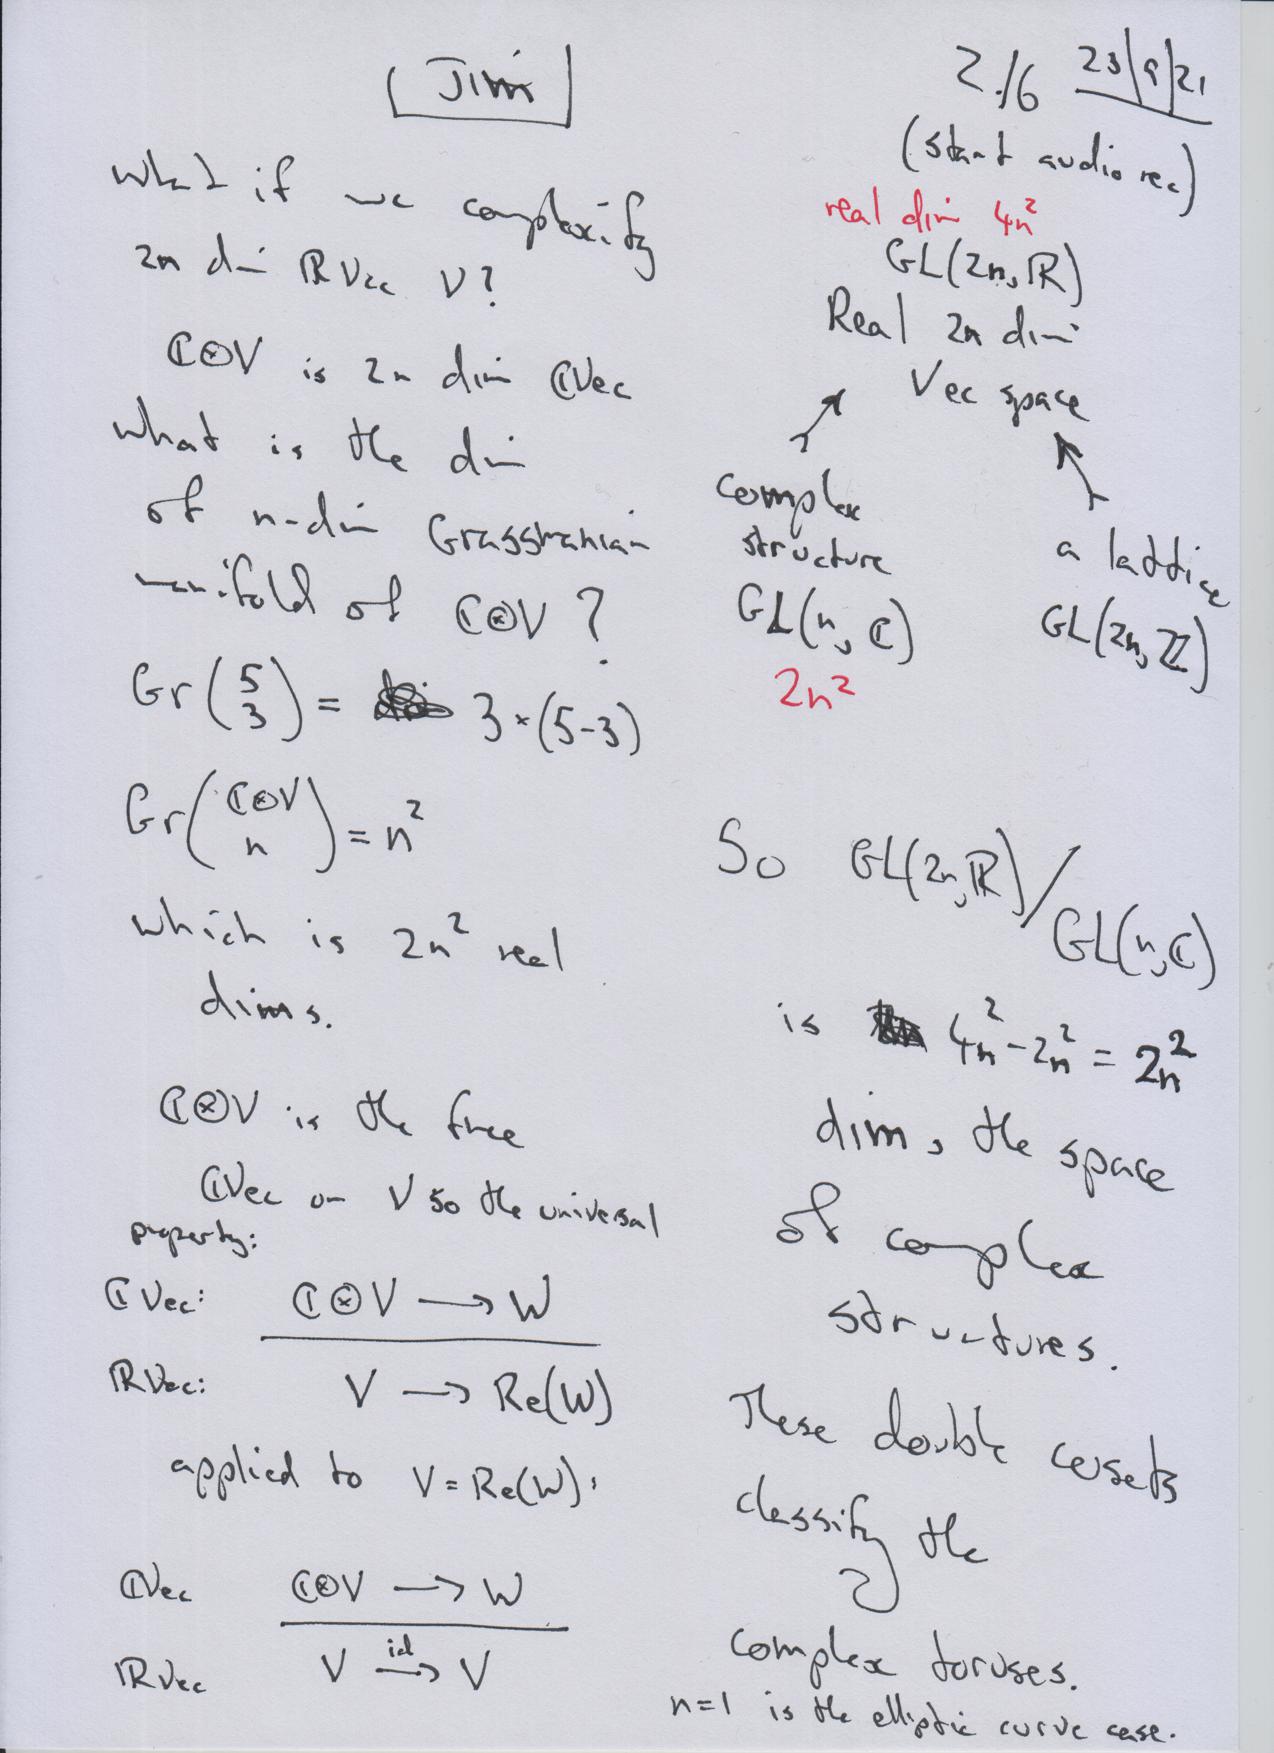 Jim
2./6 23/9/21
(start audio rec)
What if we complexify
2n dim ℝVec V?
ℂ⊗V is 2n dim ℂVec
what is the dim
of n-dim Grassmanian
manifold of ℂ⊗V?
Gr(5 3) = 3×(5-3)
Gr(ℂ⊗V n) = n²
which is 2n² real
dims.
ℂ⊗V is the free
ℂVec on V so the universal
property:
ℂVec: ℂ⊗V → W
ℝVec: V → Re(W)
applied to V = Re(W):
ℂVec ℂ⊗V → W
ℝVec V →id V
real dim 4n²
GL(2n, ℝ)
Real 2n dim
Vec space
complex
structure
GL(n, ℂ)
2n²
a lattice
GL(2n, ℤ)
So GL(2n, ℝ)/GL(n, ℂ)
is 4n² - 2n² = 2n²
dim, the space
of complex
structures.
These double cosets
classify the
complex toruses.
n=1 is the elliptic curve case.